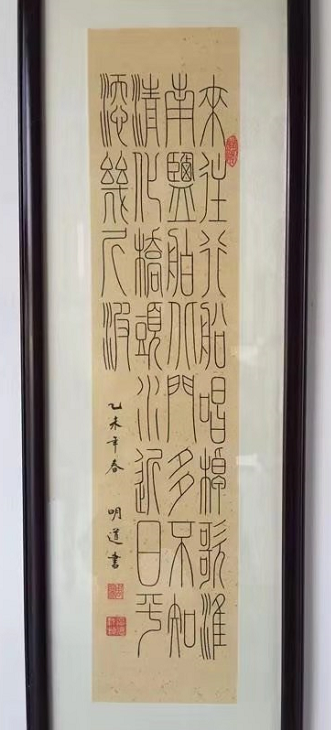 来往行船唱棹歌淮
南鹽舶北門多不知
清化橋頭水近日平
添幾尺波
乙未年春 明道書